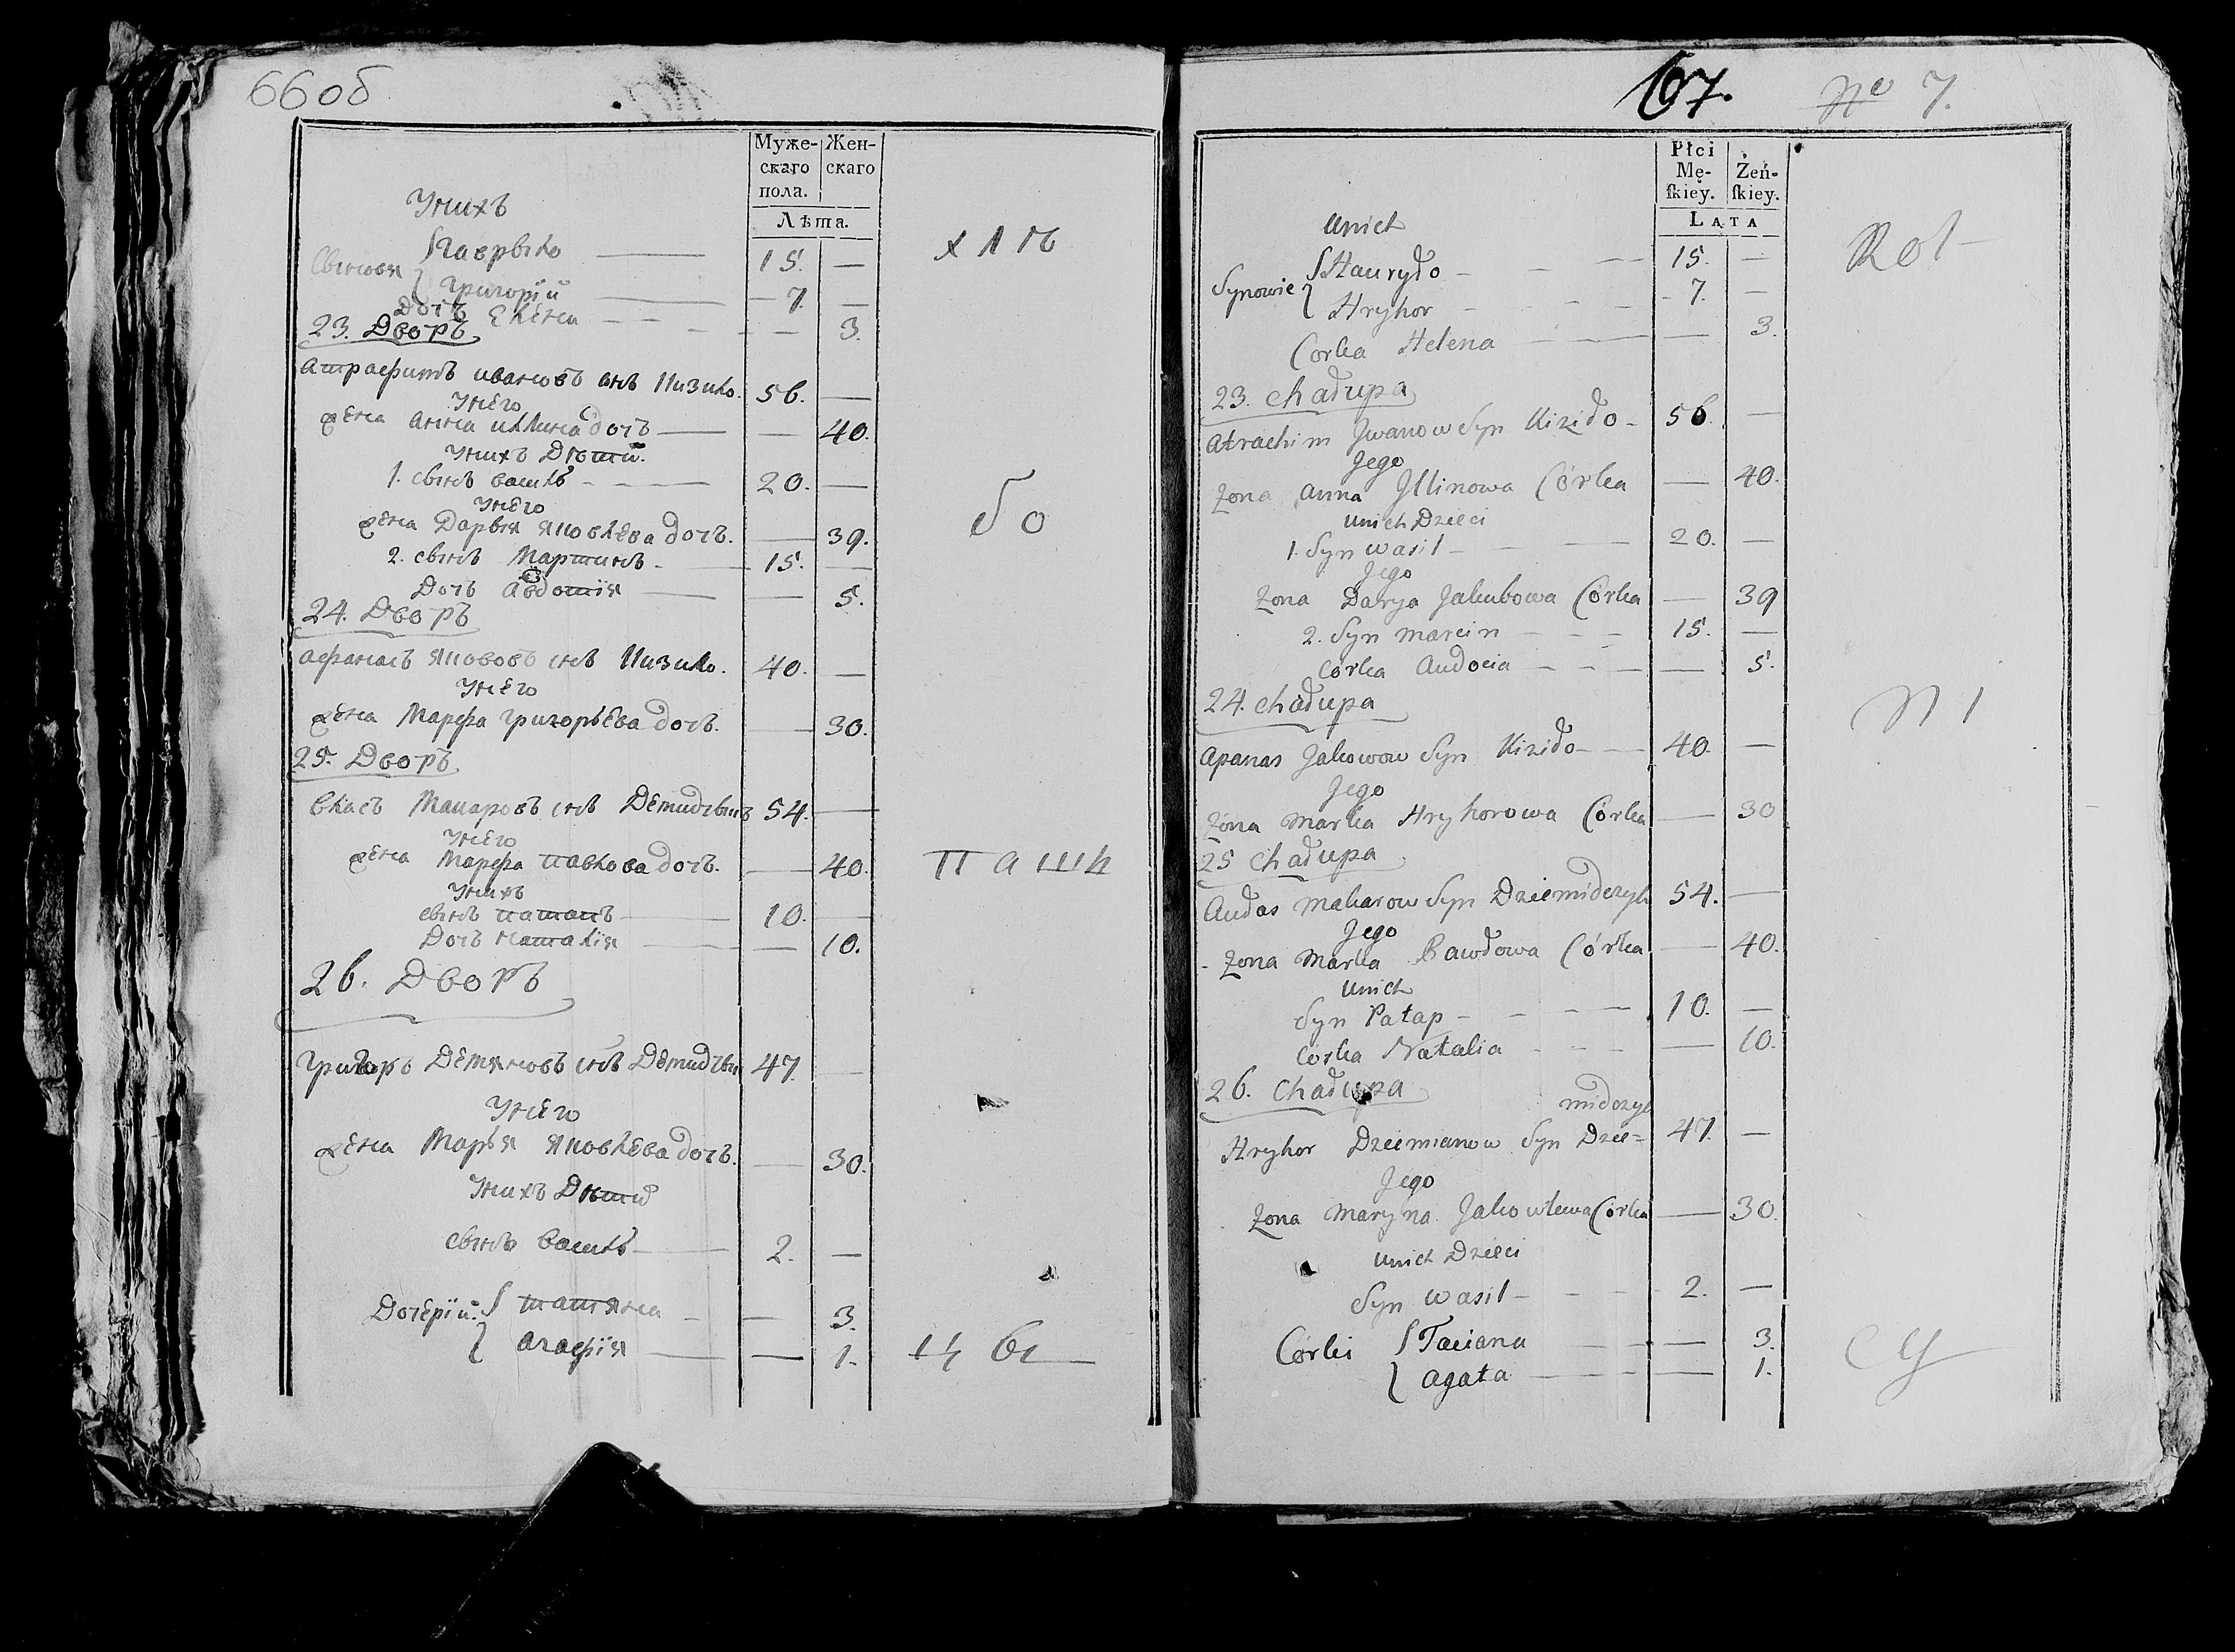 66об
Муже-
скаго
пола.
Жен-
скаго
Лѣта.
Унихъ
Гаврыло 15. —
Сыновя
Григорїй 7. —
Дочъ Елена — 3.
23. Дворъ
Атрафимъ ивановъ снъ Кизило. 56. —
Унего
жена Анна илина дочъ — 40.
Унихъ Дѣти.
1. сынъ василь 20. —
Унего
жена Дарвя яковлева дочъ. — 39.
2. сынъ Мартинъ 15. —
Дочъ Авдотїя — 5.
24. Дворъ
афанасъ якововъ снъ Кизило. 40. —
Унего
жена Марфа григорьева дочъ. — 30.
25. Дворъ
власъ Макаровъ снъ Демидчыкъ 54. —
Унего
жена Марфа павлова дочъ. — 40.
Унихъ
сынъ патапъ 10. —
Дочъ наталїя — 10.
26. Дворъ
григоръ Демяновъ снъ Демидчык 47. —
Унего
жена Марья яковлева дочъ. — 30.
Унихъ Дѣти
сынъ василь 2. —
Дочерїй: татяна — 3.
агафїя — 1.
хлѣ
бо
паши
цы
67. No 7.
Płci
Mę-
skiey.
Żeń-
skiey.
LATA
Unich
Synowie Hauryło 15. —
Hryhor 7. —
Corka Helena — 3.
23. Chałupa
Atrachim Jwanow Syn Kiziło 56. —
Jego
Zona Anna Jllinowa Córka — 40.
Unich Dzieci
1. Syn Wasil 20. —
Jego
Zona Darya Jakubowa Córka — 39
2. Syn Marcin 15. —
Córka Audocia — 5.
24. Chałupa
Apanas Jakowow Syn Kiziło 40. —
Jego
Zona Marka Hryhorowa Córka — 30
25 Chałupa
Audas Makarow Syn Dziemidczyk 54. —
Jego
Zona Marka Pawłowa Córka — 40.
Unich
Syn Patap 10. —
Córka Natalia — 10.
26. Chałupa
midczyk
Hryhor Dziemianow Syn Dzie= 47. —
Jego
Zona Maryna Jakowlewa Córka — 30.
Unich Dzieci
Syn Wasil 2. —
Córki Taciana — 3.
Agata — 1.
Rol
ni
cy